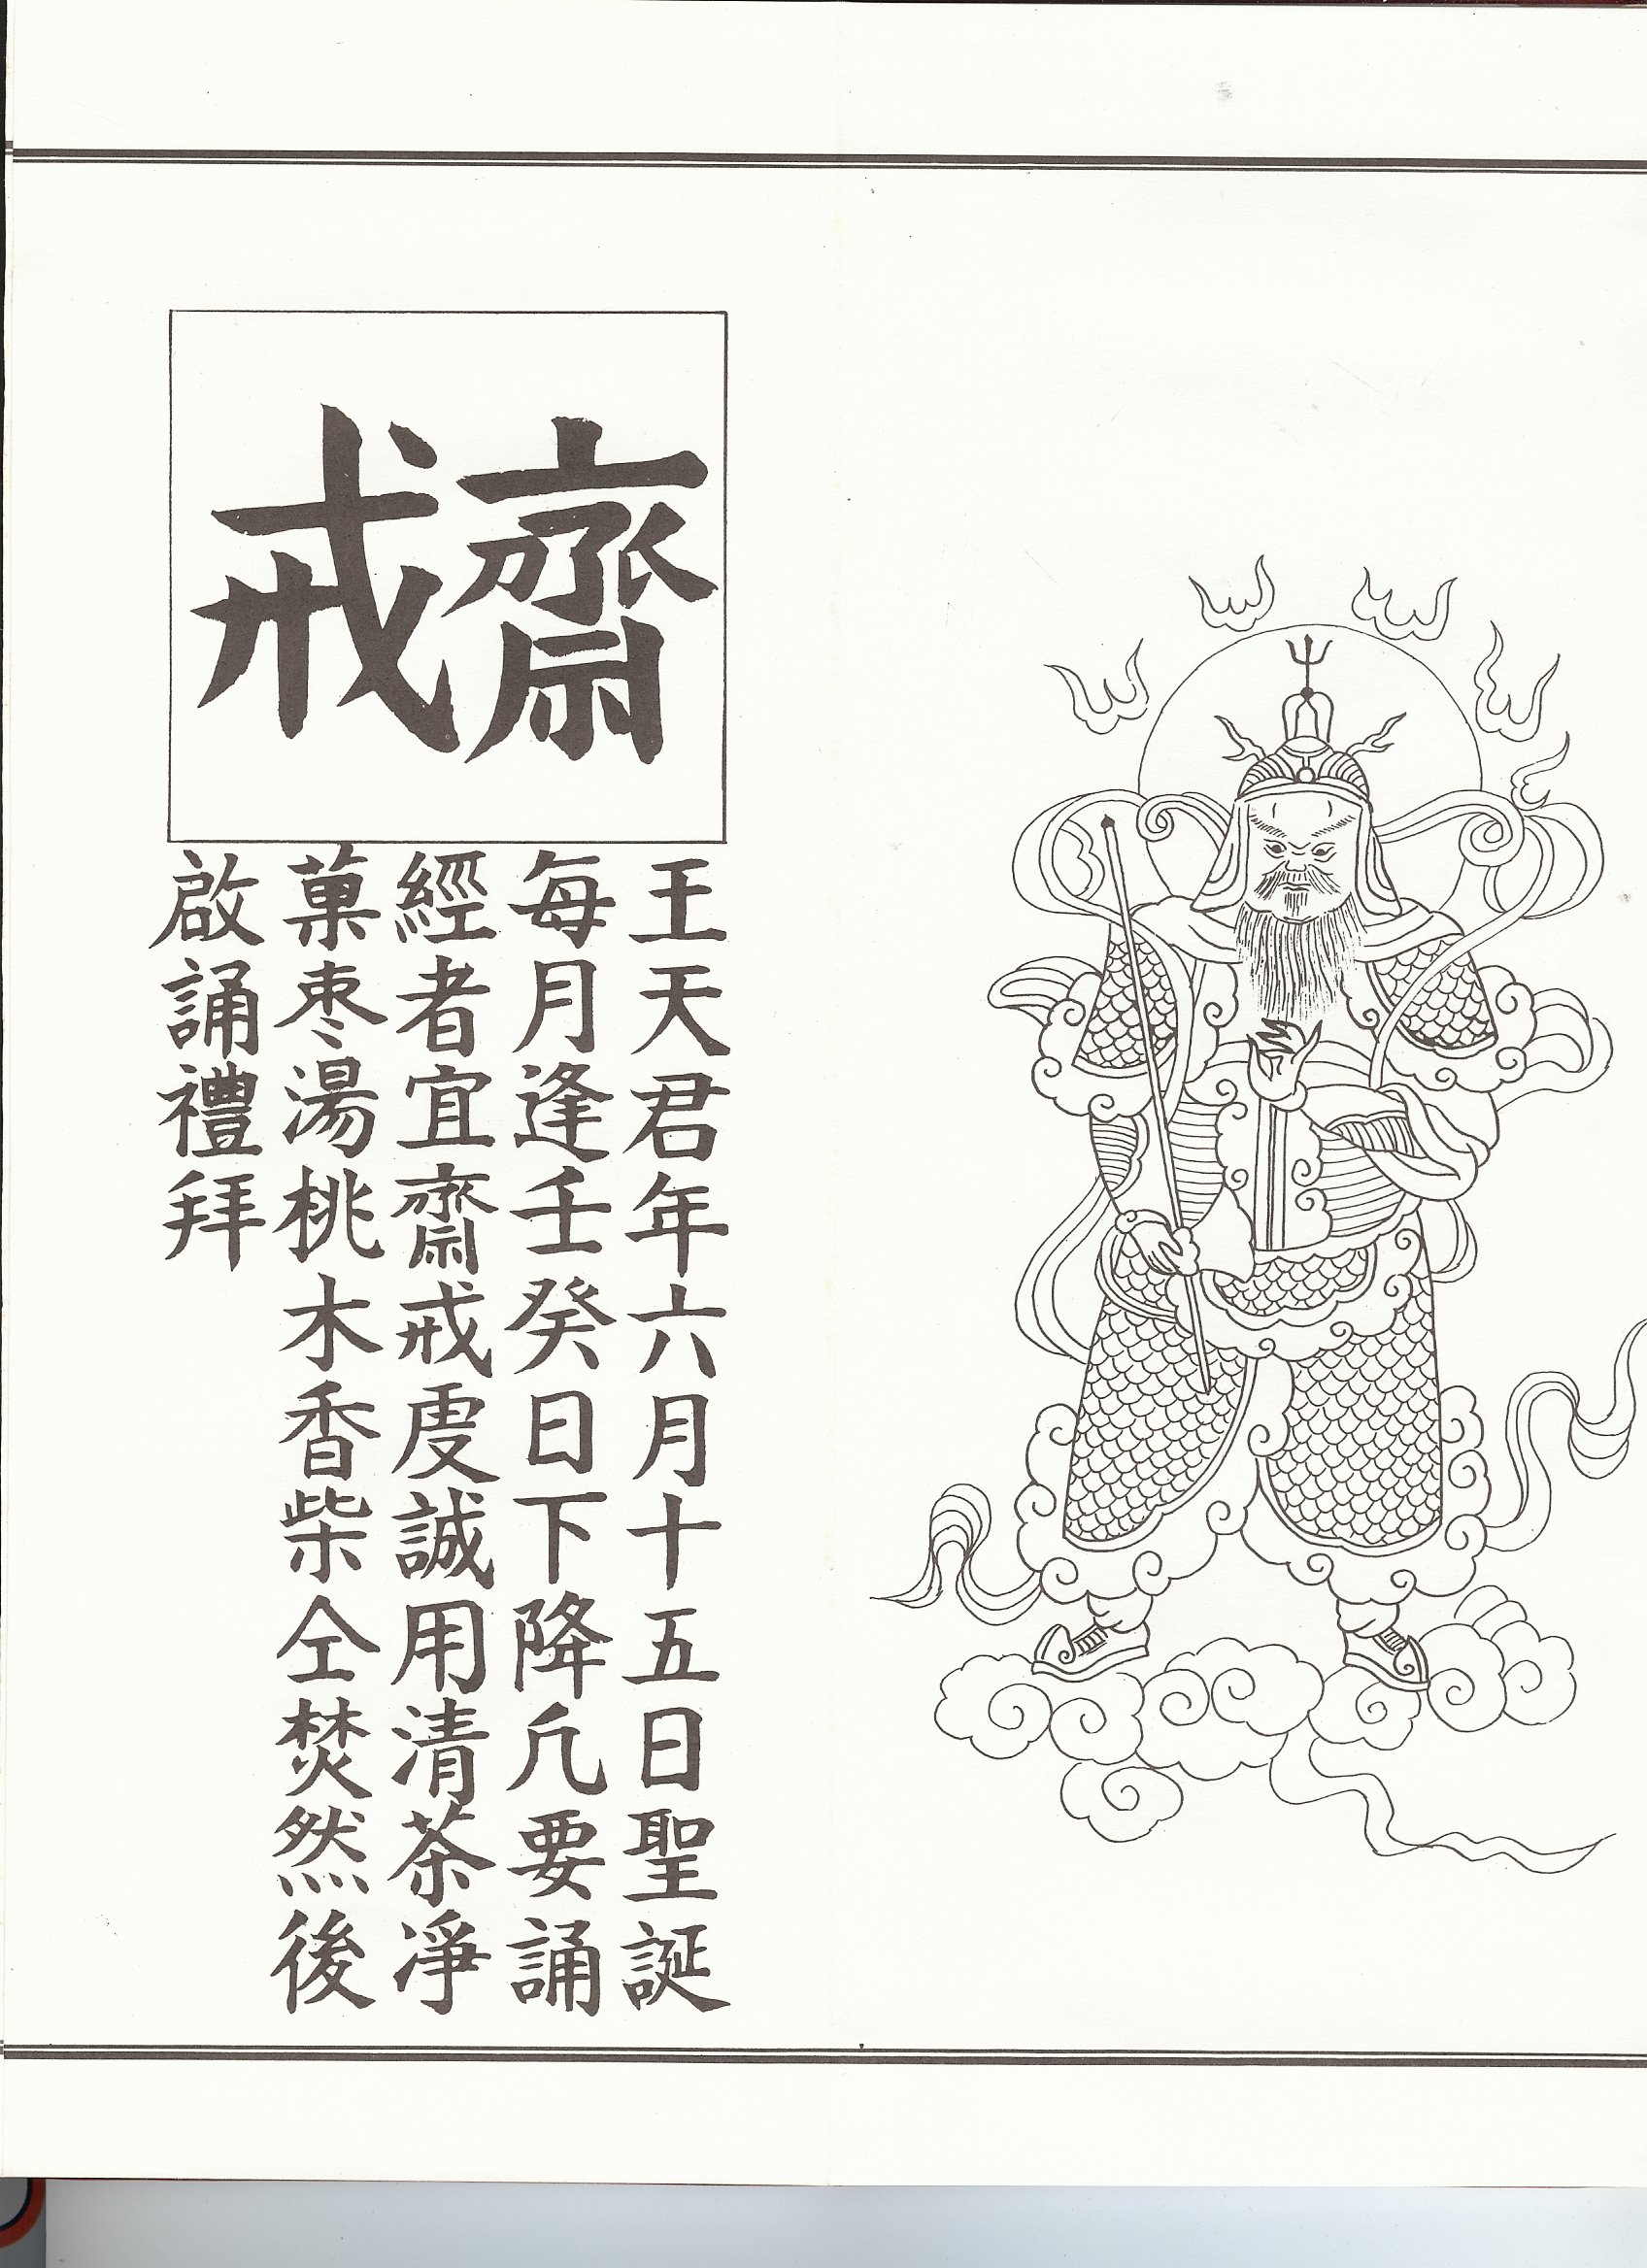 齋戒
王天君年六月十五日聖誕
每月逢壬癸日下降凢要誦
經者宜齋戒虔誠用清茶凈
菓枣湯桃木香柴仝焚然後
啟誦禮拜